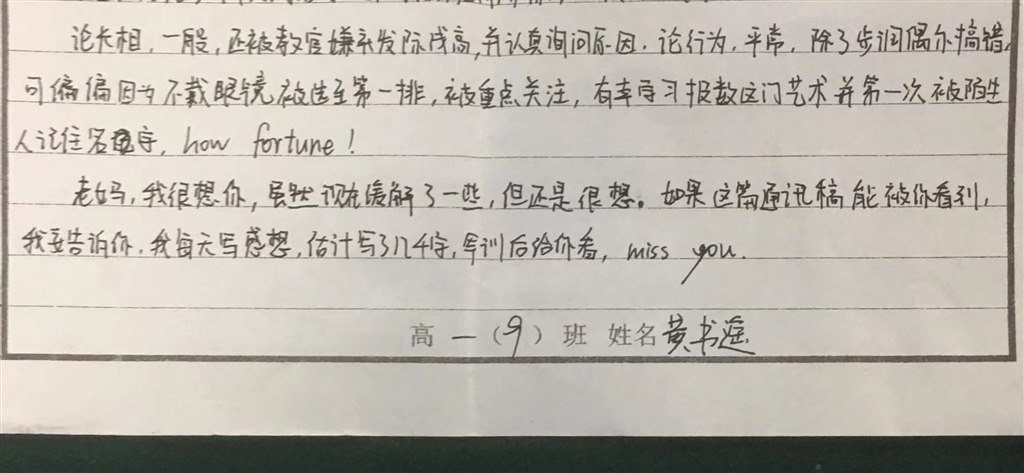 论长相，一般，还被教官嫌弃发际线高，并认真询问原因。论行为，平常，除了步调偶尔搞错，
可偏偏因为不戴眼镜被选至第一排，被重点关注，有幸学习报数这门艺术并第一次被陌生
人记住名字，how fortune！
老妈，我很想你，虽然现在缓解了一些，但还是很想。如果这篇通讯稿能被你看到，
我要告诉你，我每天写感想，估计写了几千字，军训后给你看，miss you.
高一（9）班 姓名黄书遥